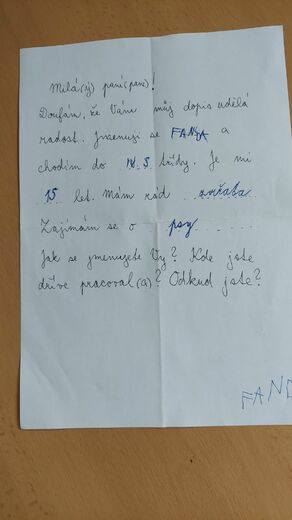 Milá(ý) paní(pane)!
Doufám, že Vám můj dopis udělá
radost. Jmenuji se FANDA a
chodím do 14. S třídy. Je mi
15 let. Mám rád zvířata
Zajímám se o psy
Jak se jmenujete Vy? Kde jste
dříve pracoval(a)? Odkud jste?
FAND